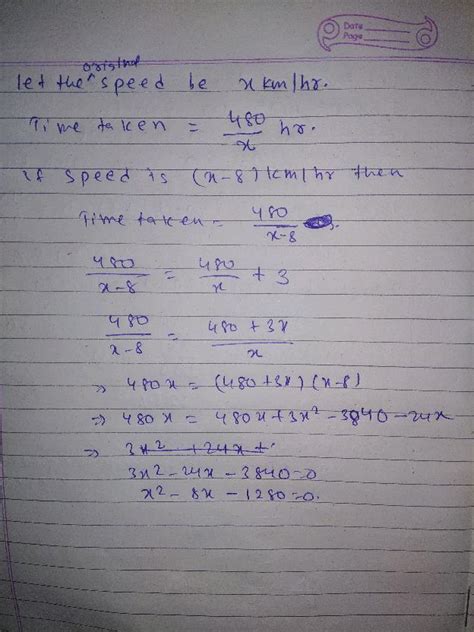 Date
Page
original
let the ^ speed be x km/hr.
Time taken = 480/x hr.
if speed is (x-8) km/hr then
Time taken = 480/x-8
480/x-8 = 480/x + 3
480/x-8 = 480+3x/x
⇒ 480x = (480+3x)(x-8)
⇒ 480x = 480x+3x²-3840-24x
⇒ 3x² +24x +
3x²-24x-3840=0
x²-8x-1280=0.